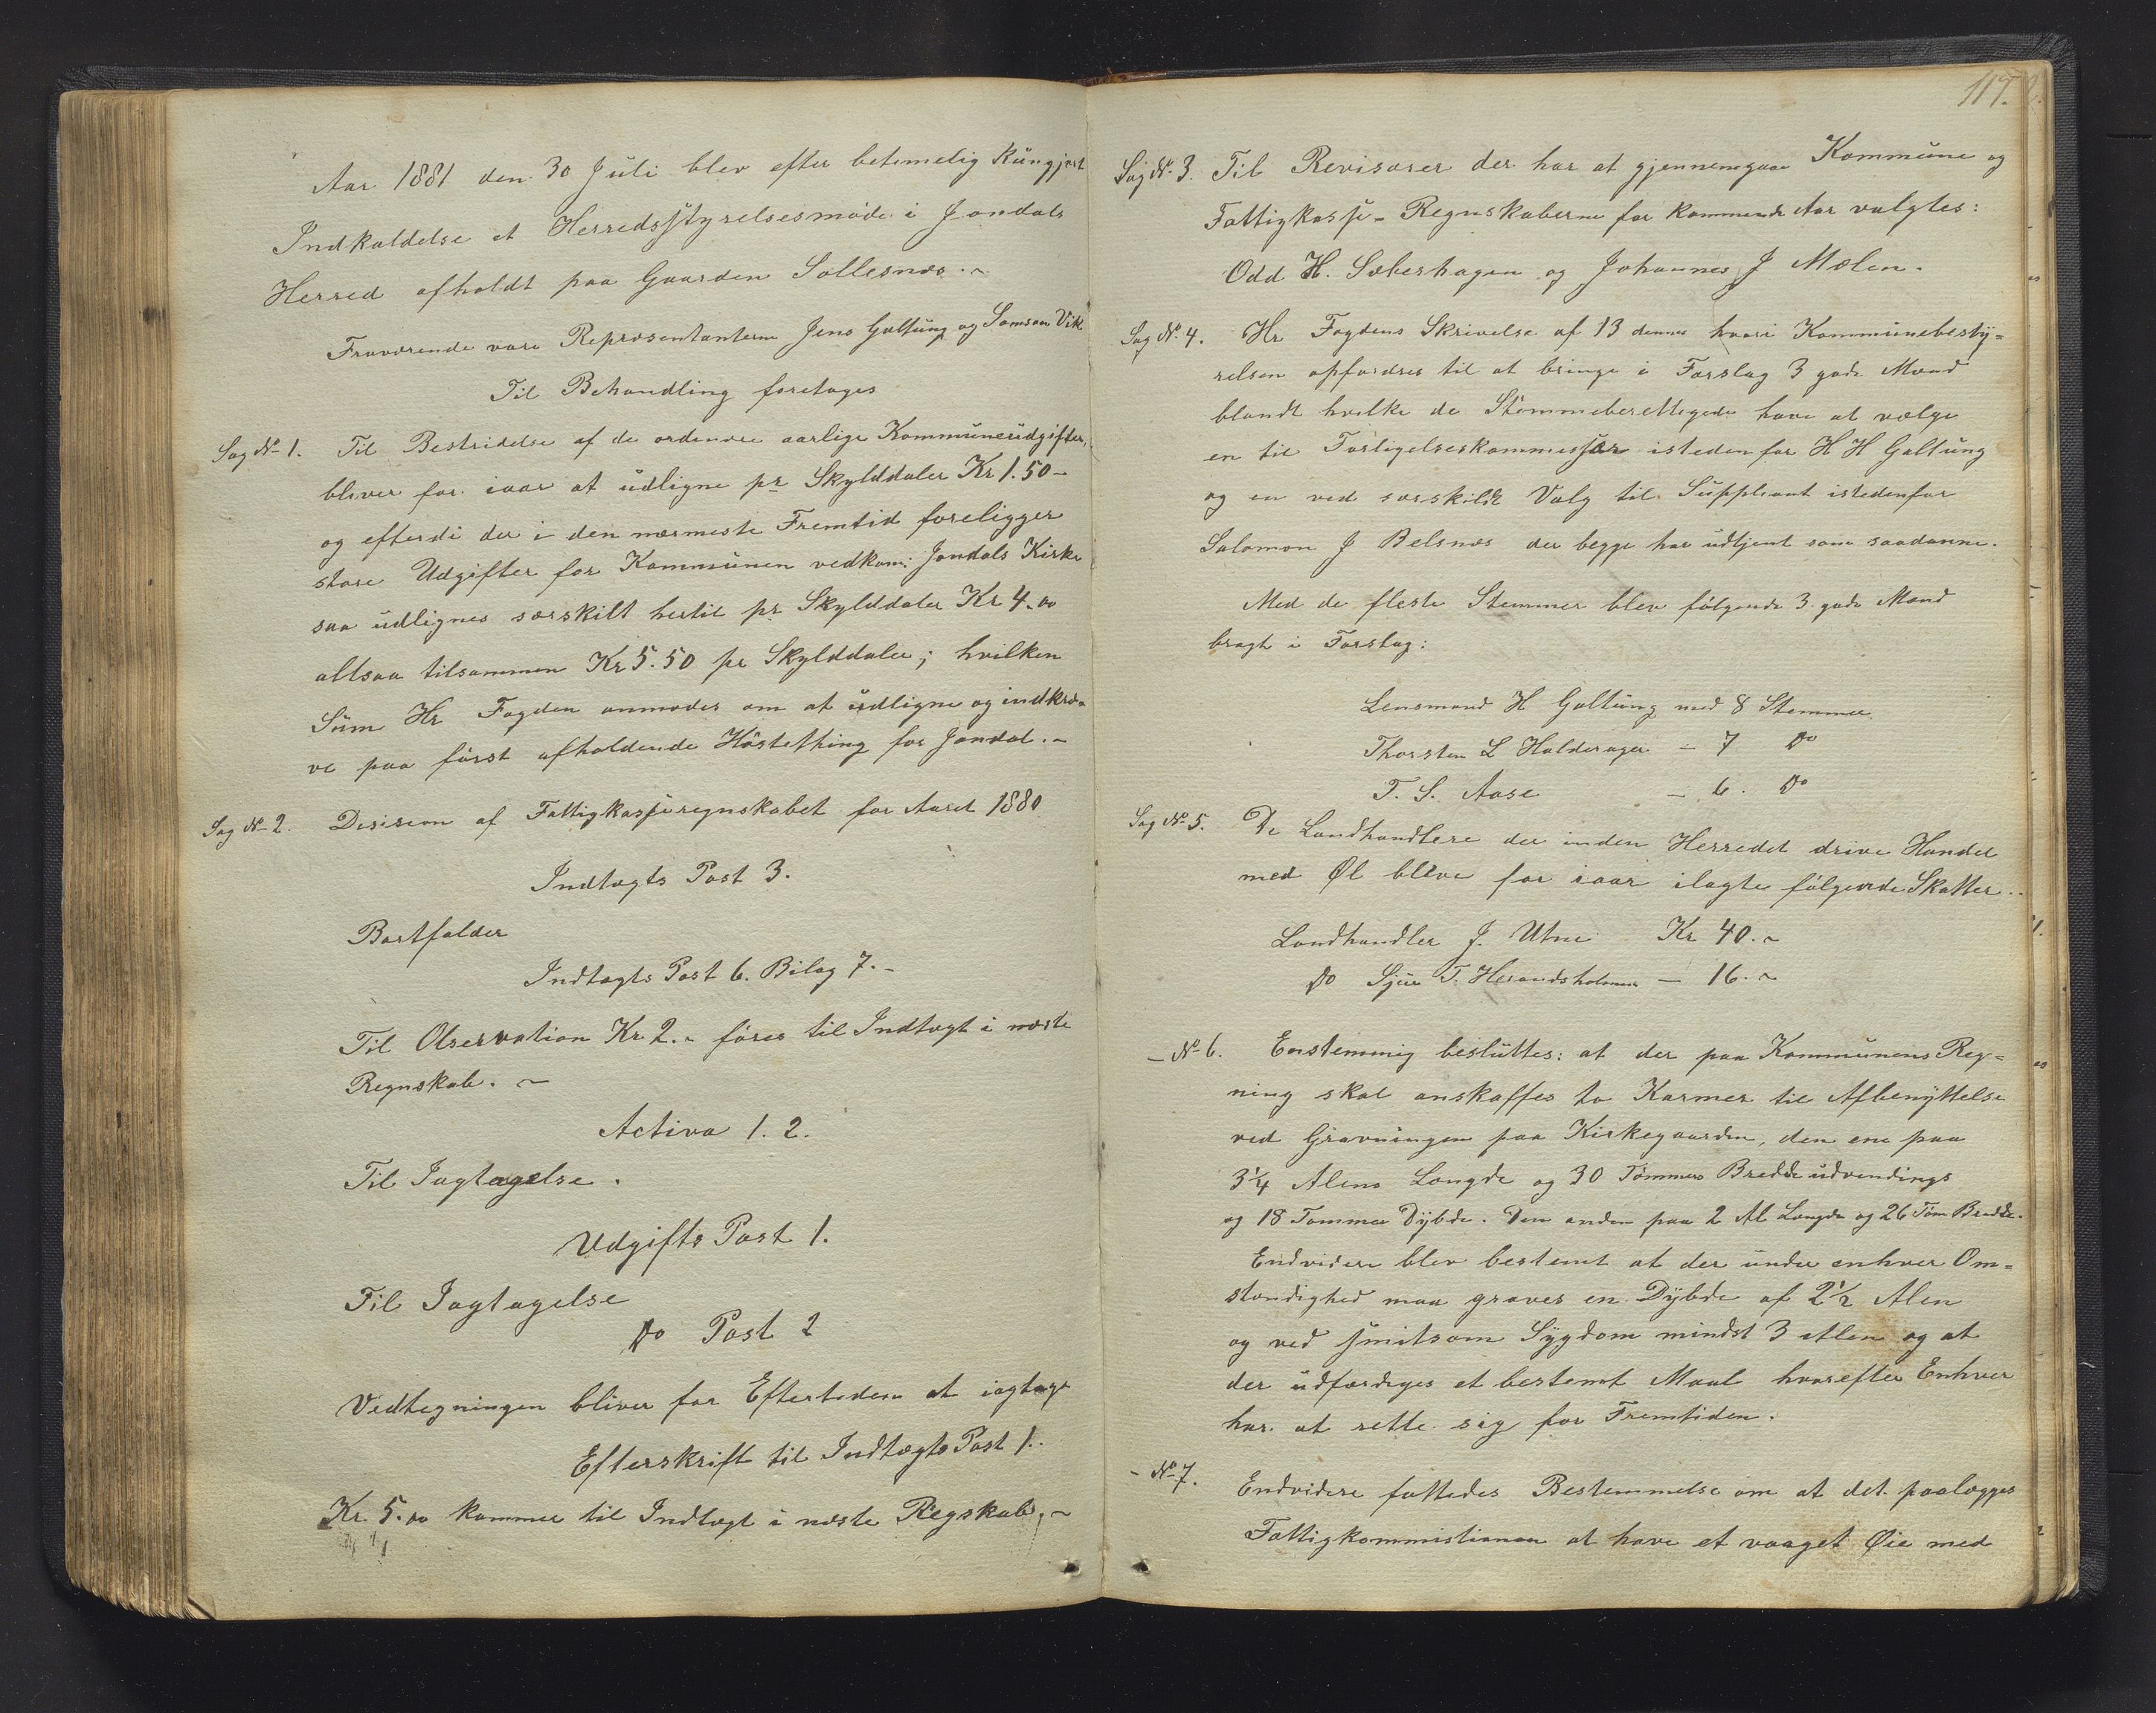 Aar 1881 den 30 Juli blev efter betimelig Kungjort
Indkaldelse et Herredsstyrelsesmøde i Jondals
Herred afholdt paa Gaarden Sollesnæs.~
Fraværende vare Repræsentanterne Jens Galtung og Samson Vik
Til Behandling foretages
Sag No 1. Til Bestridelse af de ordenære aarlige Kommuneudgifter,
bliver for iaar at udligne pr Skylddaler Kr 1.50 –
og efterdi der i den nærmeste Fremtid foreligger
store Udgifter for Kommunen vedkom: Jondals Kirke
saa udlignes særskilt hertil pr Skylddaler Kr 4.00
altsaa tilsammen Kr 5.50 pr Skylddaler; hvilken
Sum Hr Fogden anmodes om at udligne og indkræ-
ve paa først afholdende Høstething for Jondal.~
Sag No 2. Desision af Fattigkasseregnskabet for Aaret 1880
Indtægts Post 3.
Bortfalder
Indtægts Post 6. Bilag 7.–
Til Olservation Kr 2.~ føres til Indtægt i næste
Regnskab. ~
Activa 1. 2.
Til Iagtagelse.
Udgifts Post 1.
Til Iagtagelse
Do Post 2
Vedtegningen bliver for Eftertiden at iagtage
Efterskrift til Indtægts Post 1.
Kr. 5.00 kommer til Indtægt i næste Regskab.~
117.
Sag No 3. Til Revisorer der har at gjennemgaae Kommune og
Fattigkasse-Regnskaberne for kommende Aar valgtes:
Odd H. Sæbershagen og Johannes J Mælen.
Sag No 4. Hr Fogdens Skrivelse af 13 dennes hvori Kommunebesty=
relsen opfordres til at bringe i Forslag 3 gode Mænd
blandt hvilke de Stemmeberettigede have at vælge
en til Forligelseskommissær istedenfor H H Galtung
og en ved særskildt Valg til Suppleant istedenfor
Salomon J Belsnæs der begge har udtjent som saadanne.
Med de fleste Stemmer blev følgende 3 gode Mænd
bragt i Forslag:
Lensmand H Galtung med 8 Stemmer
Thorsten L Haldorager – 7 Do
T. S. Aase – 6. Do
Sag No 5. De Landhandlere der inden Herredet drive Handel
med Øl bleve for iaar ilagte følgende Skatter.
Landhandler J. Utne Kr 40.~
Do Sjur T. Herandsholmen – 16.~
– No 6. Enstemmig besluttes: at der paa Kommunens Reg=
ning skal anskaffes to Karmer til Afbenyttelse
ved Gravningen paa Kirkegaarden, den ene paa
3 1/4 Alens Længde og 30 Tommers Bredde udvendings
og 18 Tommer Dybde. Den anden paa 2 Al Længde og 26 Tom Bredde.
Endvidere blev bestemt at der under enhver Om=
stændighed maa graves en Dybde af 2 1/2 Alen
og ved smitsom Sygdom mindst 3 Alen og at
der udfærdiges et bestemt Maal hvorefter Enhver
har at rette sig for Fremtiden.
– No 7. Endvidere fattedes Bestemmelse om at det paalægges
Fattigkommistionen at have et vaaget Øie med